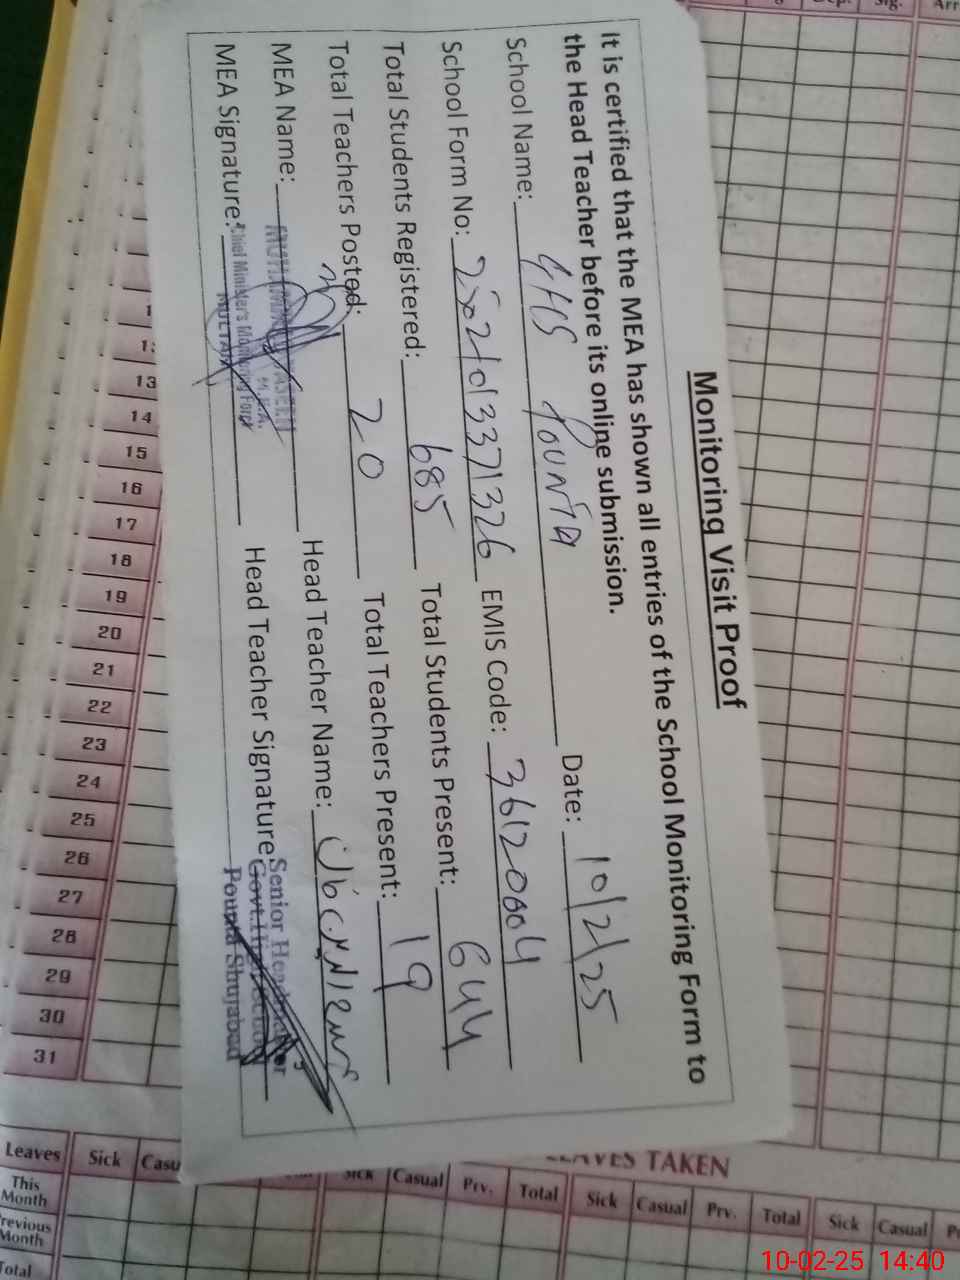 Monitoring Visit Proof
It is certified that the MEA has shown all entries of the School Monitoring Form to
the Head Teacher before its online submission.
School Name: GHS Pounta Date: 10/2/25
School Form No: EMIS Code: 36120004
Total Students Registered: 685 Total Students Present: 644
Total Teachers Posted: 20 Total Teachers Present: 19
MEA Name: Head Teacher Name:
MEA Signature: Head Teacher Signature:
Chief Minister's Monitoring Force
MULTAN
Pounta Shujabad
13
14
15
16
17
18
19
20
21
22
23
24
25
26
27
28
29
30
31
LEAVES TAKEN
Leaves Sick Casual Prv. Total Sick Casual Prv. Total Sick Casual
This Month
Previous Month
Total
10-02-25 14:40